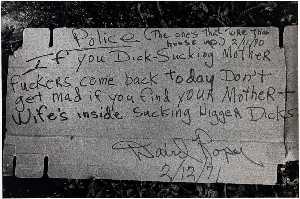 Police (The ones that wre this
house up.) 2/11/70
If you Dick-Sucking Mother
fuckers come back today Don't
get mad if you find your Mother +
Wife's inside sucking Nigger Dicks
2/12/71